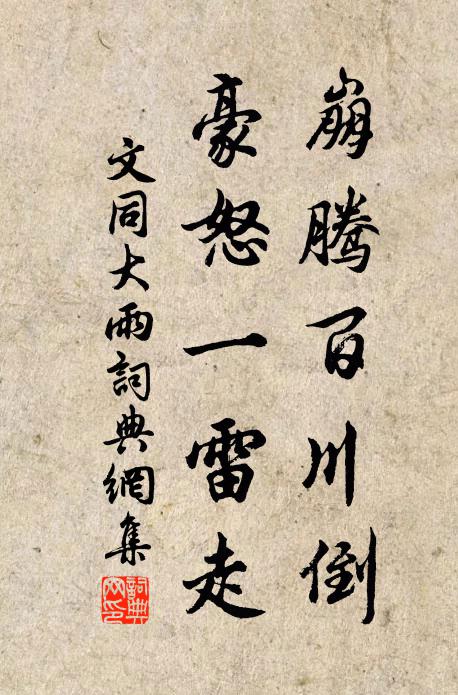 崩騰百川倒
豪怒一雷走
文同大雨詞典網集
詞典
网印